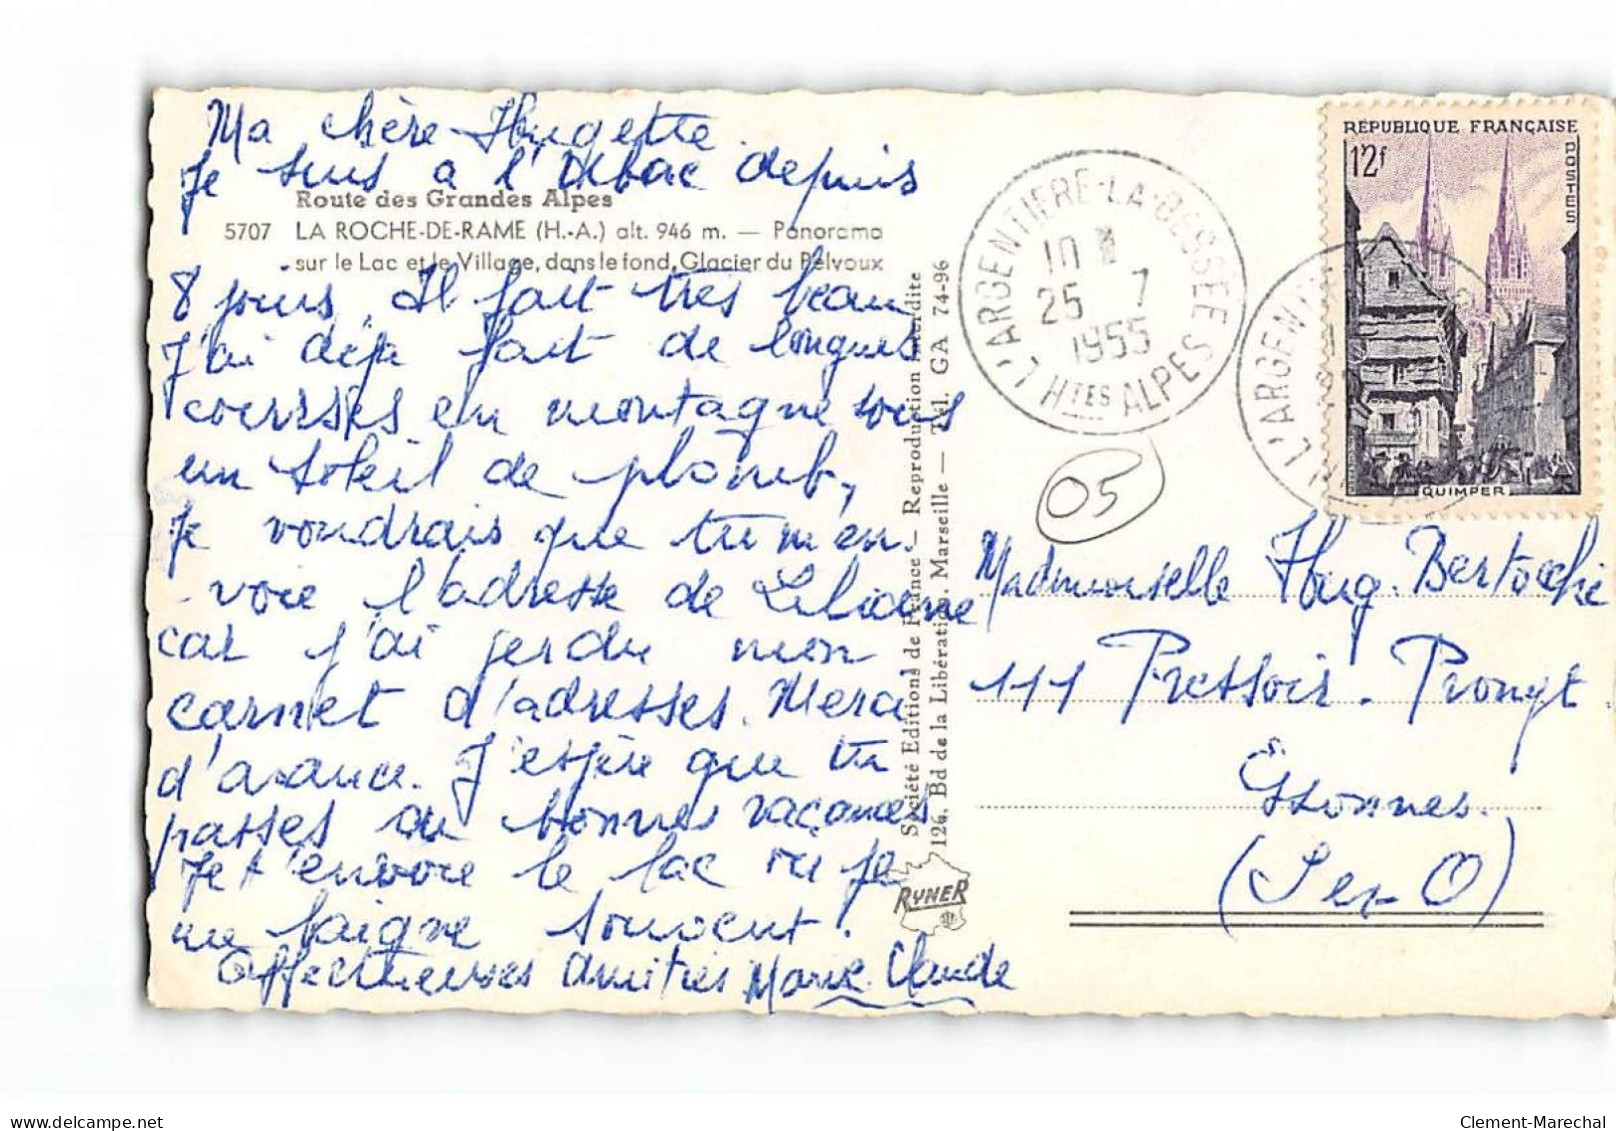 Ma chère Hugette.
Je suis a l'Ubac depuis
Route des Grandes Alpes
5707 LA ROCHE-DE-RAME (H.-A.) alt. 946 m. — Panorama
sur le Lac et le Village, dans le fond, Glacier du Pelvoux
8 jours. Il fait très beau
J'ai déja fait de longues
courses en montagne sous
un soleil de plomb,
Je voudrais que tu m'en-
voie l'adresse de Liliane
car j'ai perdu mon
carnet d'adresses. Merci
d'avance. J'espère que tu
passes de bonnes vacances
Je t'envoie le lac ou je
me baigne souvent.
Affectueuses Amitiés Marie-Claude
Société Editions de France — Reproduction interdite
126, Bd de la Libération, Marseille — Tél. GA 74-96
RYNER
L'ARGENTIERE-LA-BESSEE
10 H
25 7
1955
HTES ALPES
L'ARGEN
RÉPUBLIQUE FRANÇAISE
12f
POSTES
QUIMPER
05
Mademoiselle Hug. Bertoche
111 Pressoir-Prompt
Essonnes.
(S et O)
Clement-Marechal